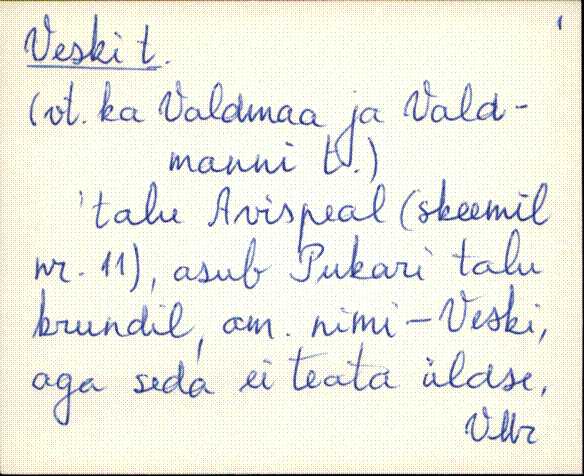 Veski t.
(vt. ka Valdmaa ja Vald-
manni t.)
'talu Avispeal (skeemil
nr. 11), asub Pukari talu
krundil, am. nimi - Veski,
aga seda ei teata üldse,